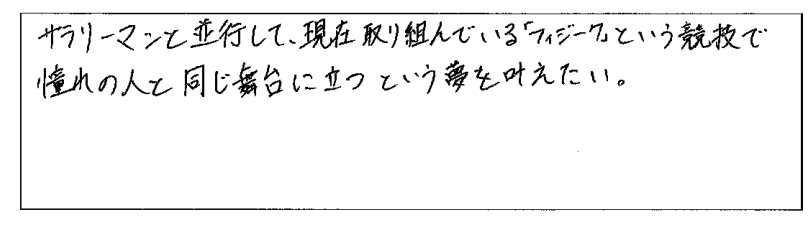 サラリーマンと並行して、現在取り組んでいる「フィジーク」という競技で
憧れの人と同じ舞台に立つという夢を叶えたい。